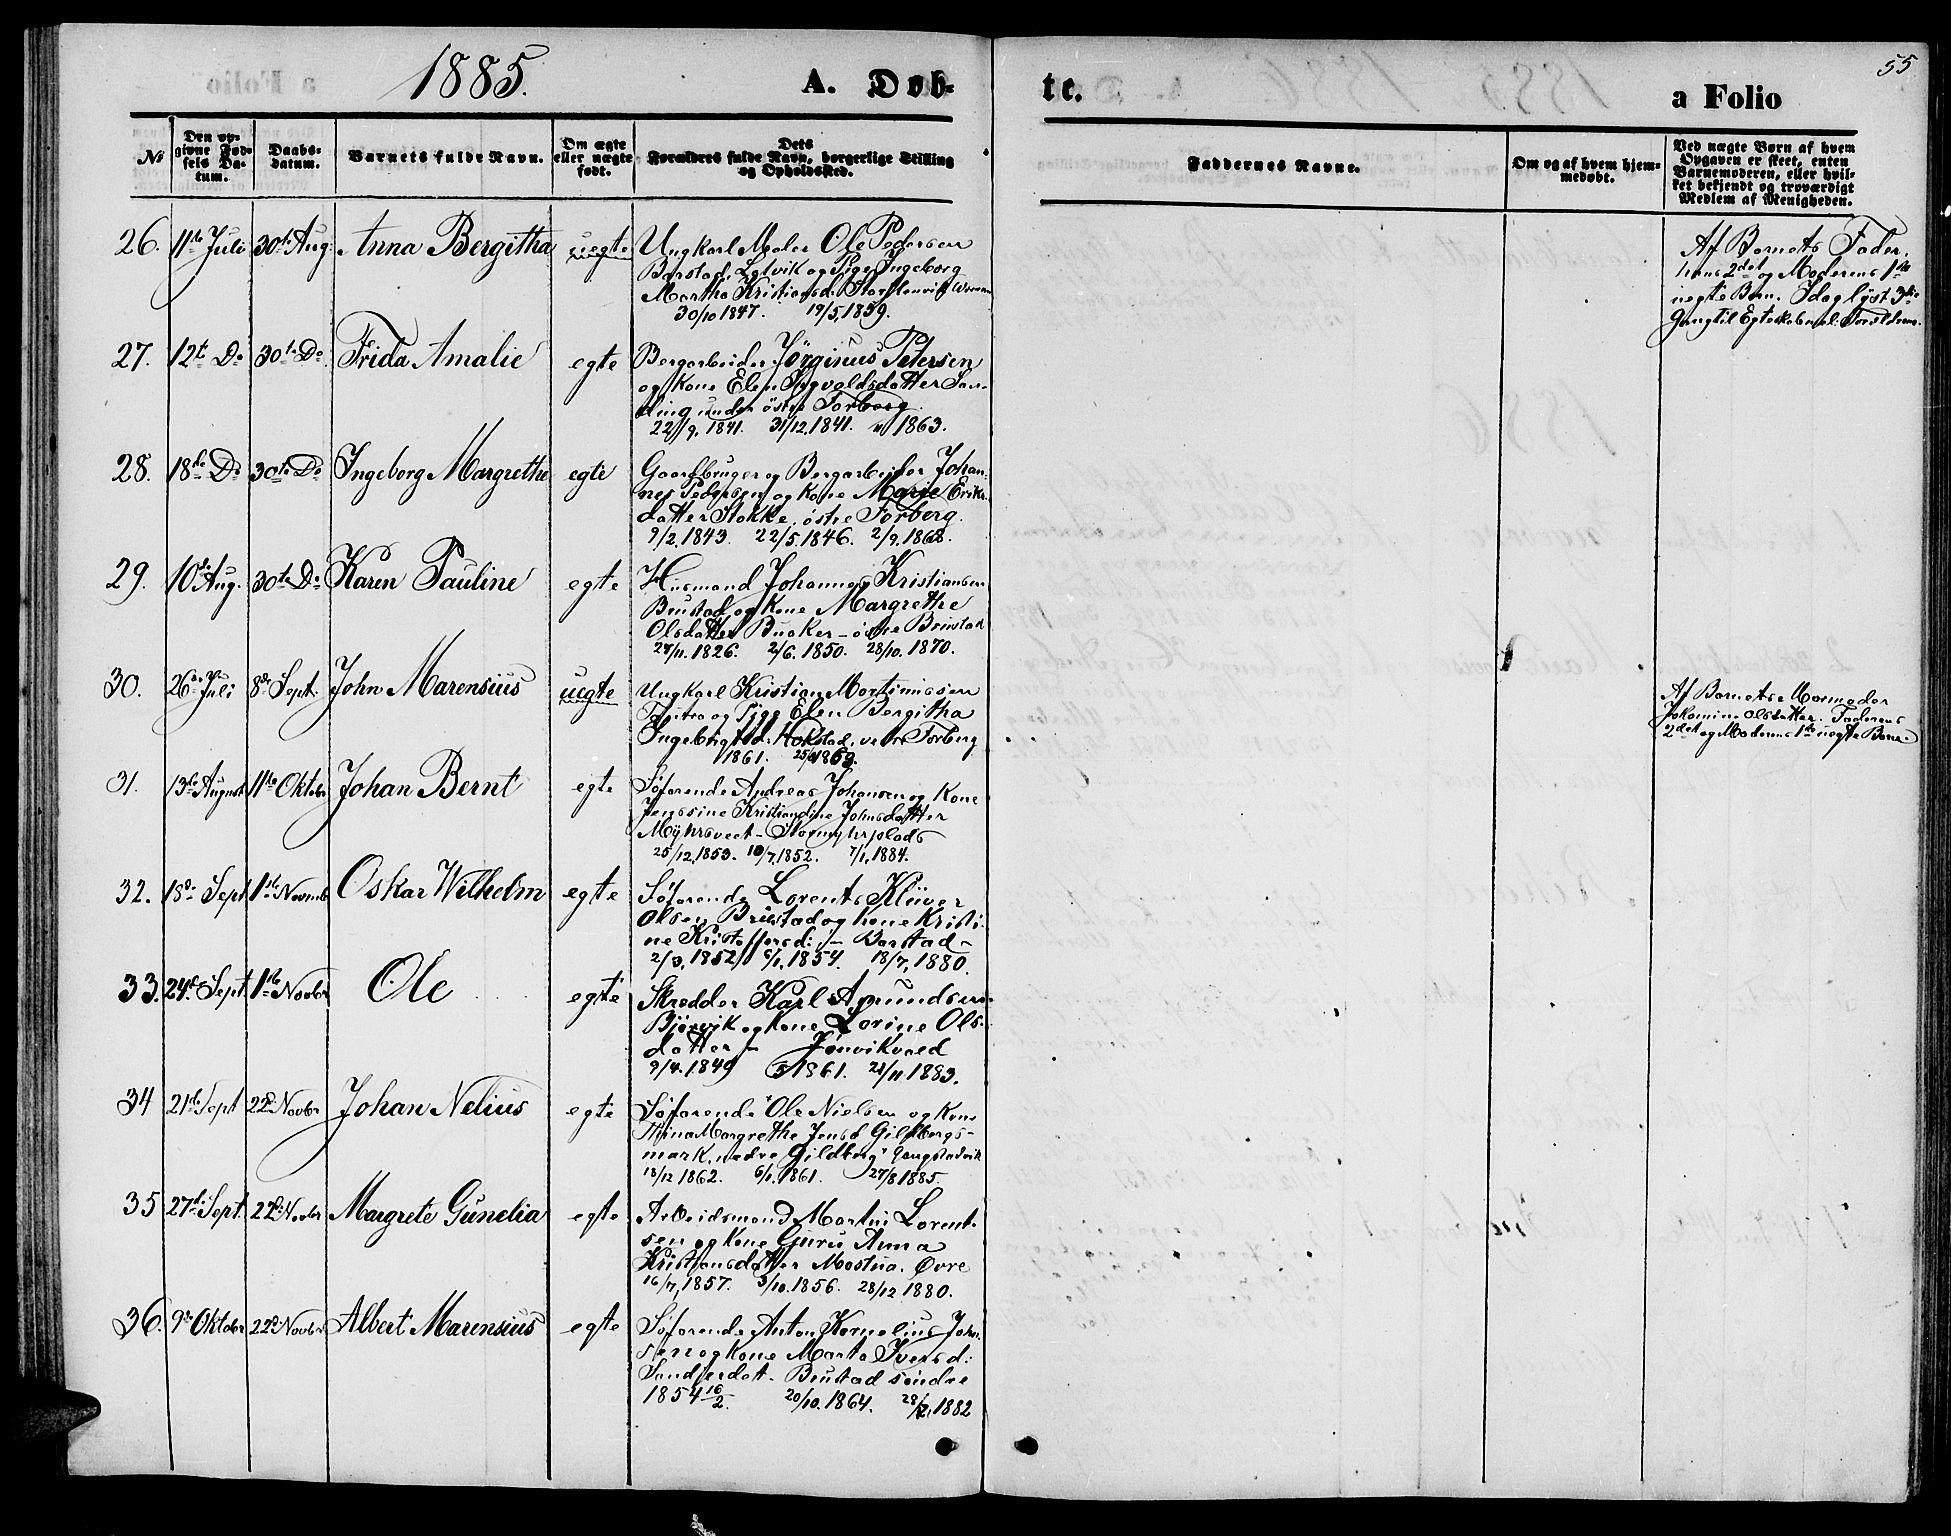 1885. A. Døb-
te. a Folio
55
№
Den op-
givne Fød-
sels Da-
tum.
Daabs-
datum.
Barnets fulde Navn.
Om ægte
eller uægte
født.
Dets
Forældres fulde Navn, borgerlige Stilling
og Opholdssted.
Faddernes Navne.
Om og af hvem hjem-
medøbt.
Ved uægte Børn af hvem
Opgaven er skeet, enten
Barnemoderen, eller hvil-
ket bekjendt og troværdigt
Medlem af Menigheden.
26. 11te Juli 30te Aug. Anna Bergitha uegte Ungkarl Maler Ole Pedersen
Barstad, og Pige Ingeborg
Martha Kristiansd.
30/10 1847. 19/5, 1859.
Af Barnets Fader,
hans 2det og Moderens 1ste
uegte Barn. Idag lyst 3die
Gang til Egteskab
27. 12te Do 30te Do Frida Amalie egte Bergarbeider Jørginus Petersen
og Kone Elen Sigvaldsdatter
under østre Forborg.
22/9, 1841. 31/12, 1841. 1863.
28. 18de Do 30te Do Ingeborg Margrethe egte Gaardbruger og Bergarbeider Johan-
nes Pedersen og Kone Marie Eriks-
datter Stokke, østre Forberg.
9/2, 1843. 22/5, 1846. 2/9, 1868.
29. 10de Aug. 30te Do Karen Pauline egte Husmand Johannes Kristiansen
Brustad og Kone Margrethe
Olsdatter - østre Brustad
27/11. 1826. 2/6. 1850. 28/10. 1870.
30. 26de Juli 8de Sept. John Marensius uegte Ungkarl Kristian Martinussen
og Pige Elen Bergitha
Hokstad, Forberg
1861. 1863.
Af Barnets Mormoder
Jokomine Olsdatter. Faderens
2det og Moderens 1ste uegte Barn.
31. 13de August 11te Oktober Johan Bernt egte Søfarende Andreas Johansen og Kone
Jenssine Kristiandine Johnsdatter
Myhrsveet - Stormyhrplads
25/12, 1853. 10/7, 1852. 7/1, 1884.
32. 18de Sept 1ste Novmbr Oskar Wilhelm egte Søfarende Lorents Klüver
Olsen Brustad og Kone Kristi-
ne Kristoffersd: - Barstad -
2/3, 1852. 6/1, 1854. 18/7, 1880.
33. 24de Sept. 1ste Novbr Ole egte Skredder Karl Amundsen
Bjørvik og Kone Lorine Ols-
datter - Jønvikvald
9/4. 1849 1861. 23/11 1883.
34 21de Sept 22de Novbr Johan Nelius egte Søfarende Ole Nielsen og Kone
Margrethe Jensd Gildbergs-
mark, nedre Gildberg Gangstadvik
18/12 1862. 6/1. 1861. 27/8 1885.
35 27de Sept. 22de Novbr Margrete Gunelia egte Arbeidsmand Martin Lorent-
sen og Kone Guru Anna
Kristiansdatter Mostua. Øvre
16/7, 1857. 3/10. 1856. 28/12 1880.
36. 9de Oktober 22de Novbr Albert Marensius egte Søfarende Anton Kornelius John-
sen og Kone Marta Iversd:
Brustad søndre
1854 16/2. 20/10. 1864. 1882